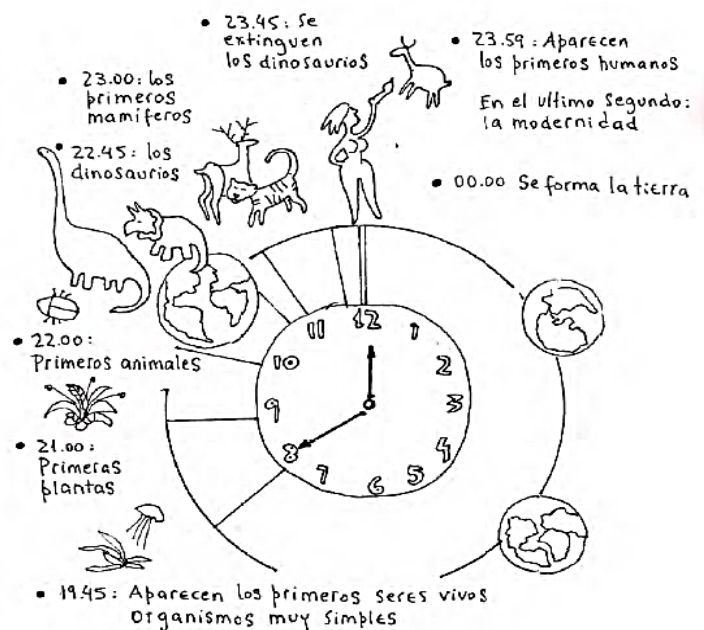 • 23.45: Se
extinguen
los dinosaurios
• 23.59: Aparecen
los primeros humanos
En el ultimo Segundo:
la modernidad
• 23.00: los
primeros
mamíferos
• 22.45: los
dinosaurios
• 00.00 Se forma la tierra
12
1
2
3
4
5
6
7
8
9
10
11
• 22.00:
Primeros animales
• 21.00:
Primeras
plantas
• 19.45: Aparecen los primeros seres vivos
Organismos muy simples